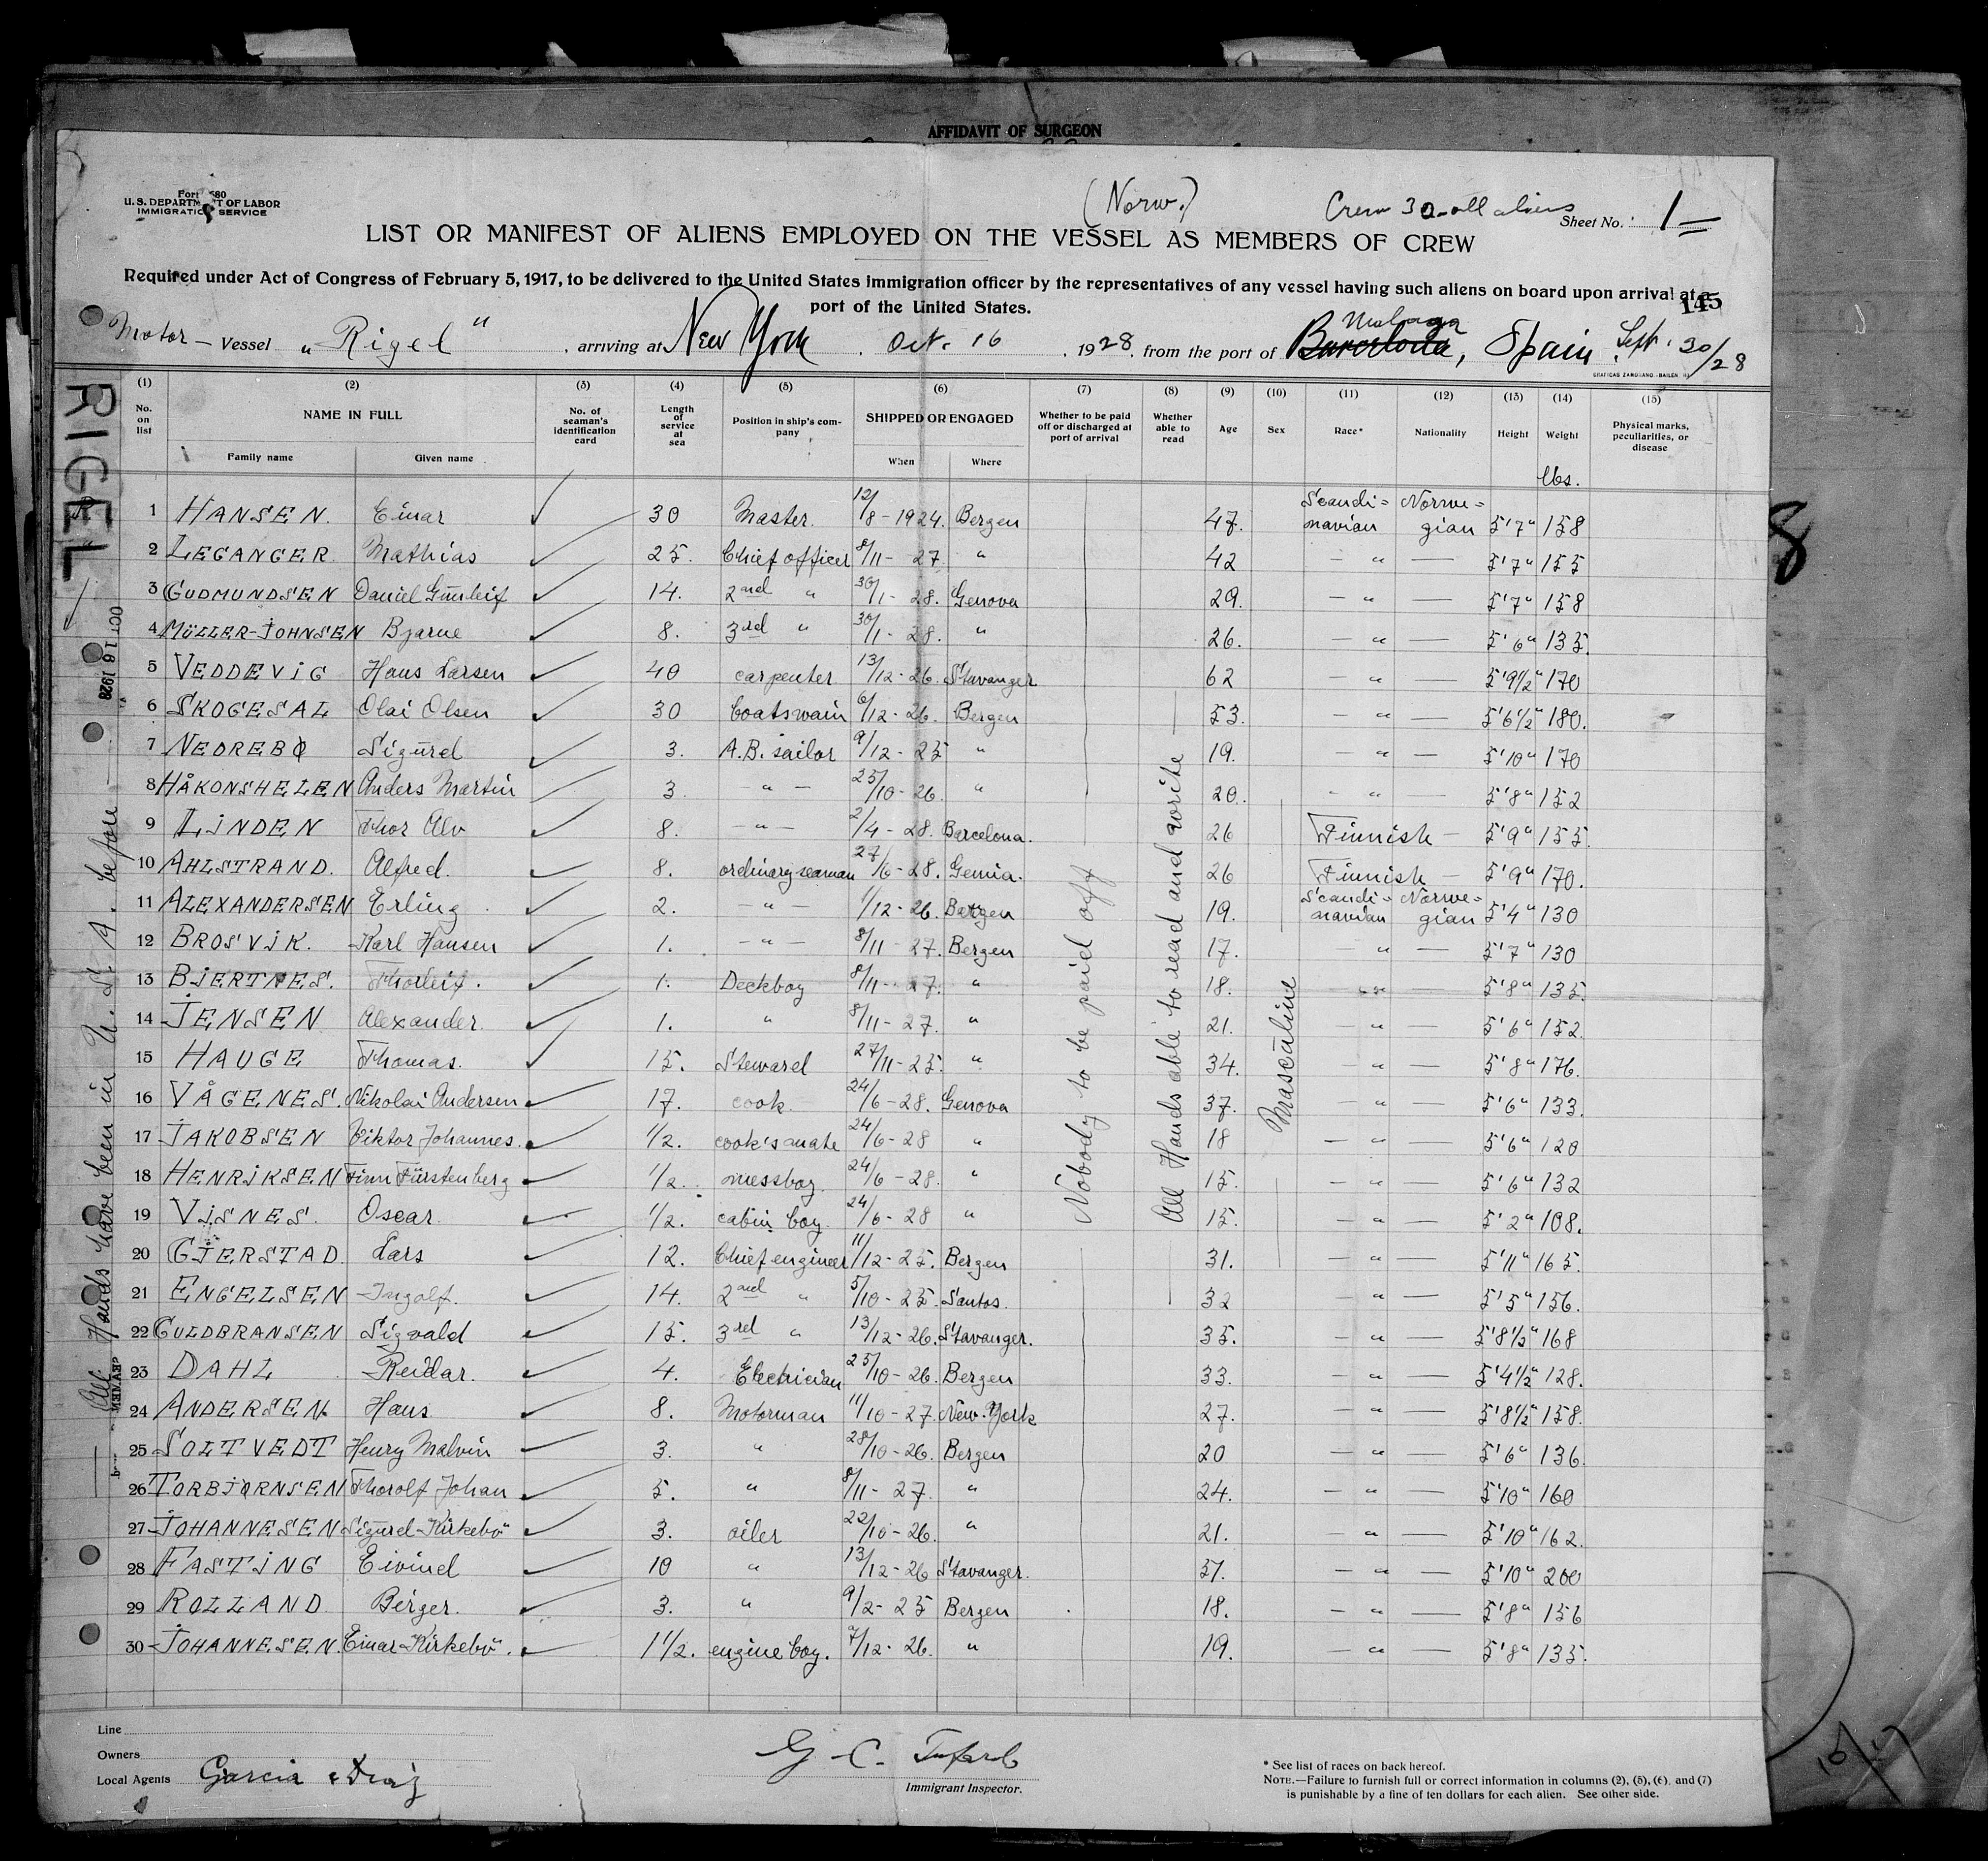 AFFIDAVIT OF SURGEON
U. S. DEPARTMENT OF LABOR
IMMIGRATION SERVICE
(Norw.)
Crew 30 - all aliens
Sheet No. 1
LIST OR MANIFEST OF ALIENS EMPLOYED ON THE VESSEL AS MEMBERS OF CREW
Required under Act of Congress of February 5, 1917, to be delivered to the United States immigration officer by the representatives of any vessel having such aliens on board upon arrival at a
port of the United States.
145
Malaga
Motor - Vessel "Rigel", arriving at New York, Oct. 16, 1928, from the port of Barcelona, Spain, Sept. 30/28
RIGEL
OCT 16 1928
All Hands have been in U. S. A. before
(1) (2) (3) (4) (5) (6) (7) (8) (9) (10) (11) (12) (13) (14) (15)
No. on list NAME IN FULL No. of seaman's identification card Length of service at sea Position in ship's company SHIPPED OR ENGAGED Whether to be paid off or discharged at port of arrival Whether able to read Age Sex Race* Nationality Height Weight Physical marks, peculiarities, or disease
Family name Given name When Where
lbs.
1 HANSEN. Einar 30 Master. 12/8-1924. Bergen 47. Scandi=navian Norwe=gian 5'7" 158
2 LEGANGER Mathias 25. Chief officer 8/11-27 " 42 - " - 5'7" 155
3 GUDMUNDSEN Daniel Gunleif 14. 2nd " 30/1-28. Genova 29. - " - 5'7" 158
4 MÜLLER-JOHNSEN Bjarne 8. 3rd " 30/1-28. " 26. - " - 5'6" 135.
5 VEDDEVIG Hans Larsen 40 carpenter 13/12-26. Stavanger 62 - " - 5'9½" 170
6 SKOGESAL Olai Olsen 30 boatswain 6/12-26. Bergen 53. - " - 5'6½" 180.
7 NEDREBØ Sigurd 3. A.B. sailor 9/12-25 " 19. - " - 5'10" 170
8 HÅKONSHELEN Anders Martin 3 - " - 25/10-26. " 20. - " - 5'8" 152
9 LINDEN Thor Alv 8. - " - 2/4-28. Barcelona. 26 Finnish - 5'9" 155.
10 AHLSTRAND. Alfred. 8. ordinary seaman 27/6-28. 26 Finnish - 5'9" 170.
11 ALEXANDERSEN Erling 2. - " - 1/12-26. Bergen 19. Scandi=navian Norwe=gian 5'4" 130
12 BROSVIK. Karl Hansen 1. - " - 8/11-27. Bergen 17. - " - 5'7" 130
13 BJERTNES. Thorleif. 1. Deckboy 8/11-27. " 18. - " - 5'8" 135.
14 JENSEN Alexander 1. " 8/11-27. " 21. - " - 5'6" 152.
15 HAUGE Thomas. 15. Steward 27/11-25. " 34. - " - 5'8" 176.
16 VÅGENES. Nikolai Andersen 17. cook. 24/6-28. Genova 37. - " - 5'6" 133.
17 JAKOBSEN Viktor Johannes. 1/2. cook's mate 24/6-28 " 18 - " - 5'6" 120
18 HENRIKSEN Finn Fürstenberg 1/2. messboy. 24/6-28. " 15. - " - 5'6" 132
19 VISNES. Oscar. 1/2. cabin boy. 24/6-28 " 15. - " - 5'2" 108.
20 GJERSTAD. Lars 12. Chief engineer 11/12-25. Bergen 31. - " - 5'11" 165.
21 ENGELSEN Ingolf. 14. 2nd " 5/10-25. Santos. 32 - " - 5'5" 156.
22 GULDBRANSEN Sigvald 15. 3rd " 13/12-26. Stavanger. 35. - " - 5'8½" 168
23 DAHL Reidar. 4. Electrician 25/10-26. Bergen 33. - " - 5'4½" 128.
24 ANDERSEN. Hans 8. Motorman 11/10-27. New York 27. - " - 5'8½" 158.
25 SOLTVEDT Henry Malvin 3. " 28/10-26. Bergen 20 - " - 5'6" 136.
26 TORBJØRNSEN Thorolf Johan 5. " 8/11-27. " 24. - " - 5'10" 160
27 JOHANNESEN Sigurd-Kirkebö 3. oiler 22/10-26. " 21. - " - 5'10" 162.
28 FASTING Eivind 10 " 13/12-26 Stavanger. 37. - " - 5'10" 200
29 ROLLAND Berger. 3. " 9/2-25 Bergen 18. - " - 5'8" 156
30 JOHANNESEN. Einar-Kirkebö. 1 1/2. engine boy. 7/12-26. " 19. - " - 5'8" 135.
Nobody to be paid off
All Hands able to read and write
Mascäline
Line
Owners
Local Agents Garcia & Diaz
G. C.
Immigrant Inspector.
* See list of races on back hereof.
NOTE.—Failure to furnish full or correct information in columns (2), (5), (6) and (7)
is punishable by a fine of ten dollars for each alien. See other side.
8